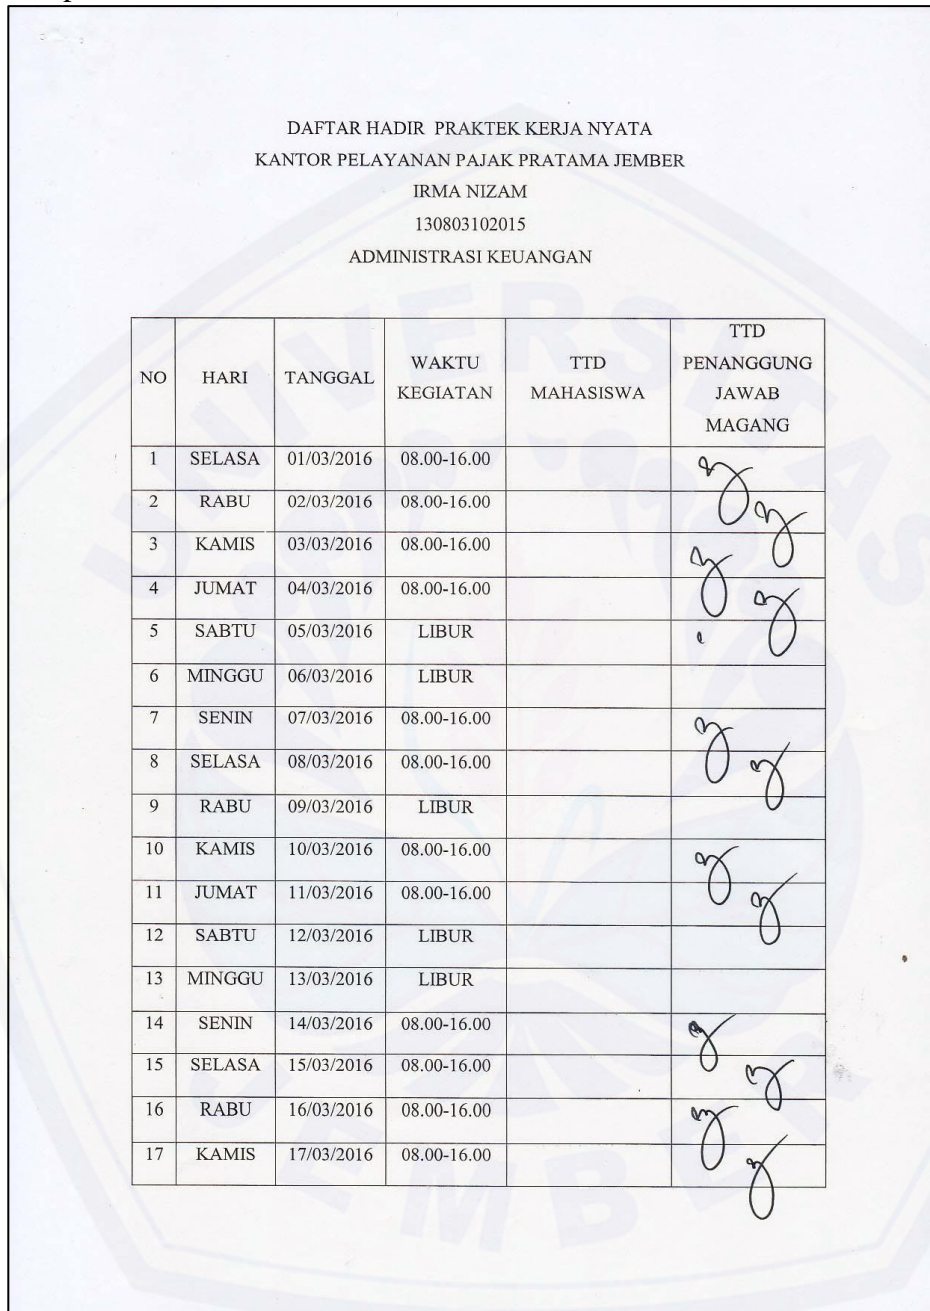 DAFTAR HADIR PRAKTEK KERJA NYATA
KANTOR PELAYANAN PAJAK PRATAMA JEMBER
IRMA NIZAM
130803102015
ADMINISTRASI KEUANGAN
NO HARI TANGGAL WAKTU KEGIATAN TTD MAHASISWA TTD PENANGGUNG JAWAB MAGANG
1 SELASA 01/03/2016 08.00-16.00
2 RABU 02/03/2016 08.00-16.00
3 KAMIS 03/03/2016 08.00-16.00
4 JUMAT 04/03/2016 08.00-16.00
5 SABTU 05/03/2016 LIBUR
6 MINGGU 06/03/2016 LIBUR
7 SENIN 07/03/2016 08.00-16.00
8 SELASA 08/03/2016 08.00-16.00
9 RABU 09/03/2016 LIBUR
10 KAMIS 10/03/2016 08.00-16.00
11 JUMAT 11/03/2016 08.00-16.00
12 SABTU 12/03/2016 LIBUR
13 MINGGU 13/03/2016 LIBUR
14 SENIN 14/03/2016 08.00-16.00
15 SELASA 15/03/2016 08.00-16.00
16 RABU 16/03/2016 08.00-16.00
17 KAMIS 17/03/2016 08.00-16.00
UNIVERSITAS
JEMBER